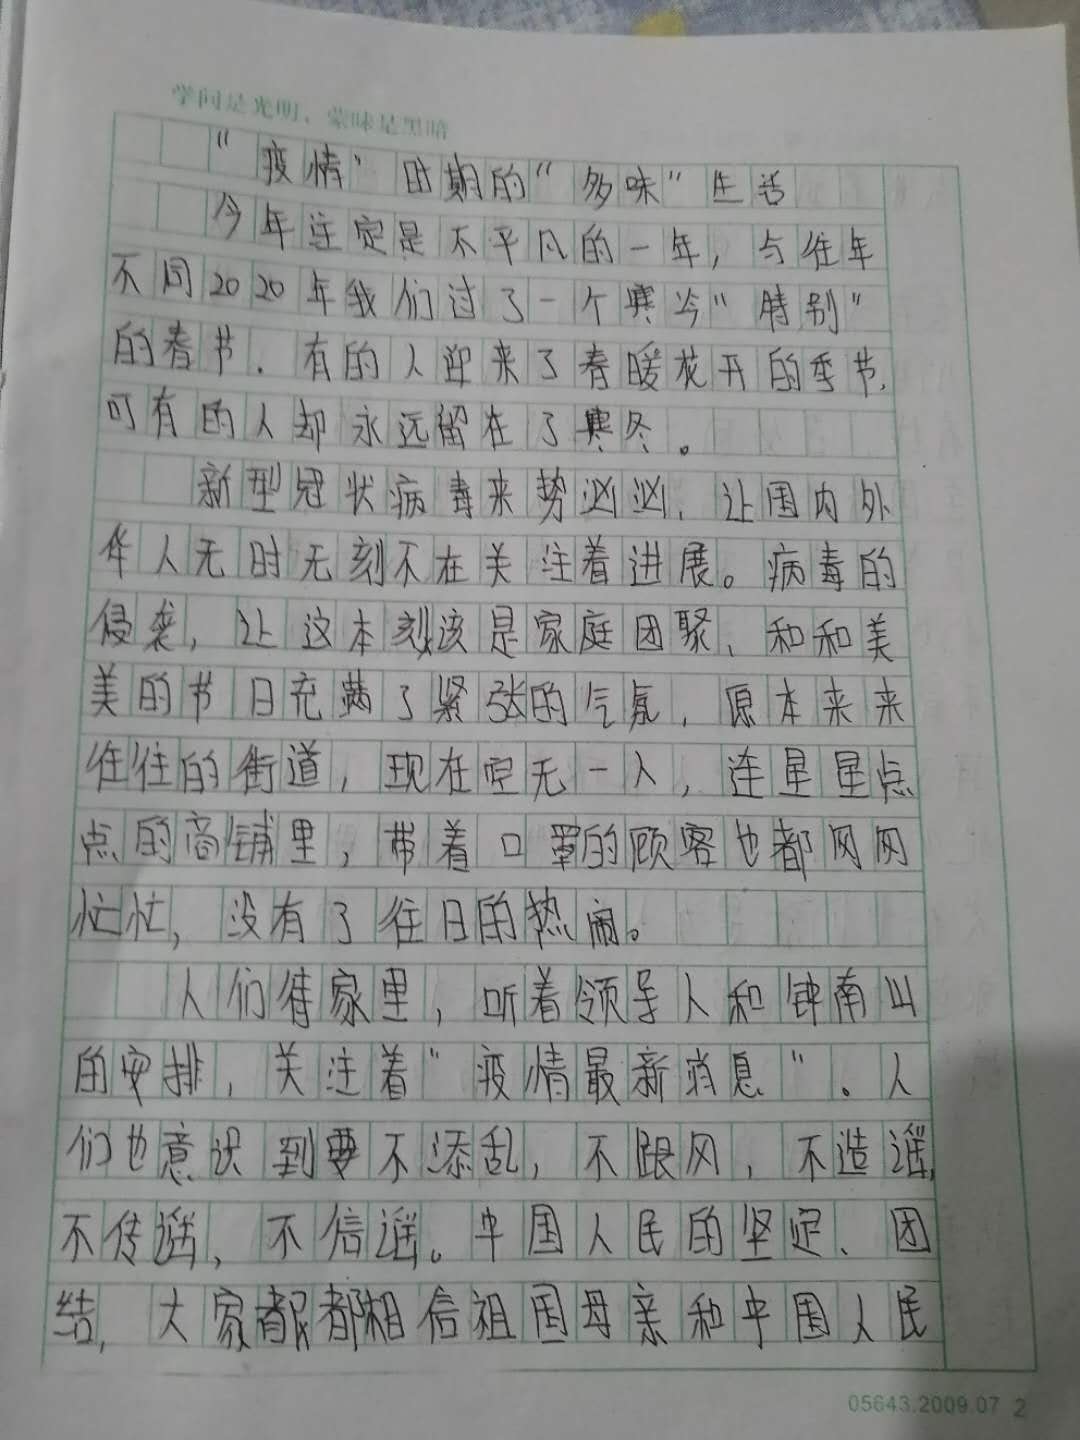 学问是光明，蒙昧是黑暗
“疫情”时期的“多味”生活
今年注定是不平凡的一年，与往年
不同2020年我们过了一个寒冷“特别”
的春节．有的人迎来了春暖花开的季节，
可有的人却永远留在了寒冬。
新型冠状病毒来势汹汹，让国内外
华人无时无刻不在关注着进展。病毒的
侵袭，让这本刻该是家庭团聚、和和美
美的节日充满了紧张的气氛，原本来来
往往的街道，现在空无一人，连星星点
点的商铺里，带着口罩的顾客也都网网
忙忙，没有了往日的热闹。
人们待家里，听着领导人和钟南山
的安排，关注着“疫情最新消息”。人
们也意识到要不添乱，不跟风，不造谣，
不传谣，不信谣。中国人民的坚定、团
结，大家都都相信祖国母亲和中国人民
05643.2009.07 2